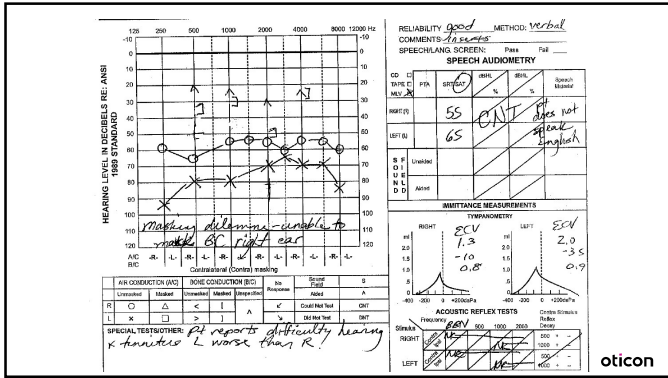 125 250 500 1000 2000 4000 8000 12000 Hz
-10 -10
0 0
10 10
20 20
30 30
40 40
50 50
60 60
70 70
80 80
90 90
100 100
110 110
120 120
HEARING LEVEL IN DECIBELS RE: ANSI
1989 STANDARD
Masking dilemma - unable to
mask BC right ear
A/C -R- -L- -R- -L- -R- -L- -R- -L- -R- -L- -R-
B/C
Contralateral (Contra) masking
AIR CONDUCTION (A/C) BONE CONDUCTION (B/C) No Response Sound Field S
Unmasked Masked Unmasked Masked Unspecified Aided A
R O △ < [ ^ ↙ Could Not Test CNT
L × □ > ] ↘ Did Not Test DNT
SPECIAL TESTS/OTHER: Pt reports difficulty hearing
+ tinnitus L worse than R.
RELIABILITY good METHOD: verbal
COMMENTS inserts
SPEECH/LANG SCREEN: Pass Fail
SPEECH AUDIOMETRY
CD TAPE MLV PTA SRT/SAT dBHL % dBHL % Speech Material
RIGHT (R) 55 CNT pt does not
LEFT (L) 65 speak English
SOUND FIELD Unaided
Aided
IMMITTANCE MEASUREMENTS
TYMPANOMETRY
RIGHT ECV LEFT ECV
ml 1.3 ml 2.0
2.0 -10 2.0 -35
1.5 0.8 1.5 0.9
1.0 1.0
.5 .5
-400 -200 0 +200daPa -400 -200 0 +200daPa
ACOUSTIC REFLEX TESTS
Stimulus Frequency BBN 500 1000 2000 Contra Stimulus Reflex Decay
RIGHT Contra Ipsi NR NR 500 + -
1000 + -
LEFT Contra Ipsi NR NR 500 + -
1000 + -
oticon